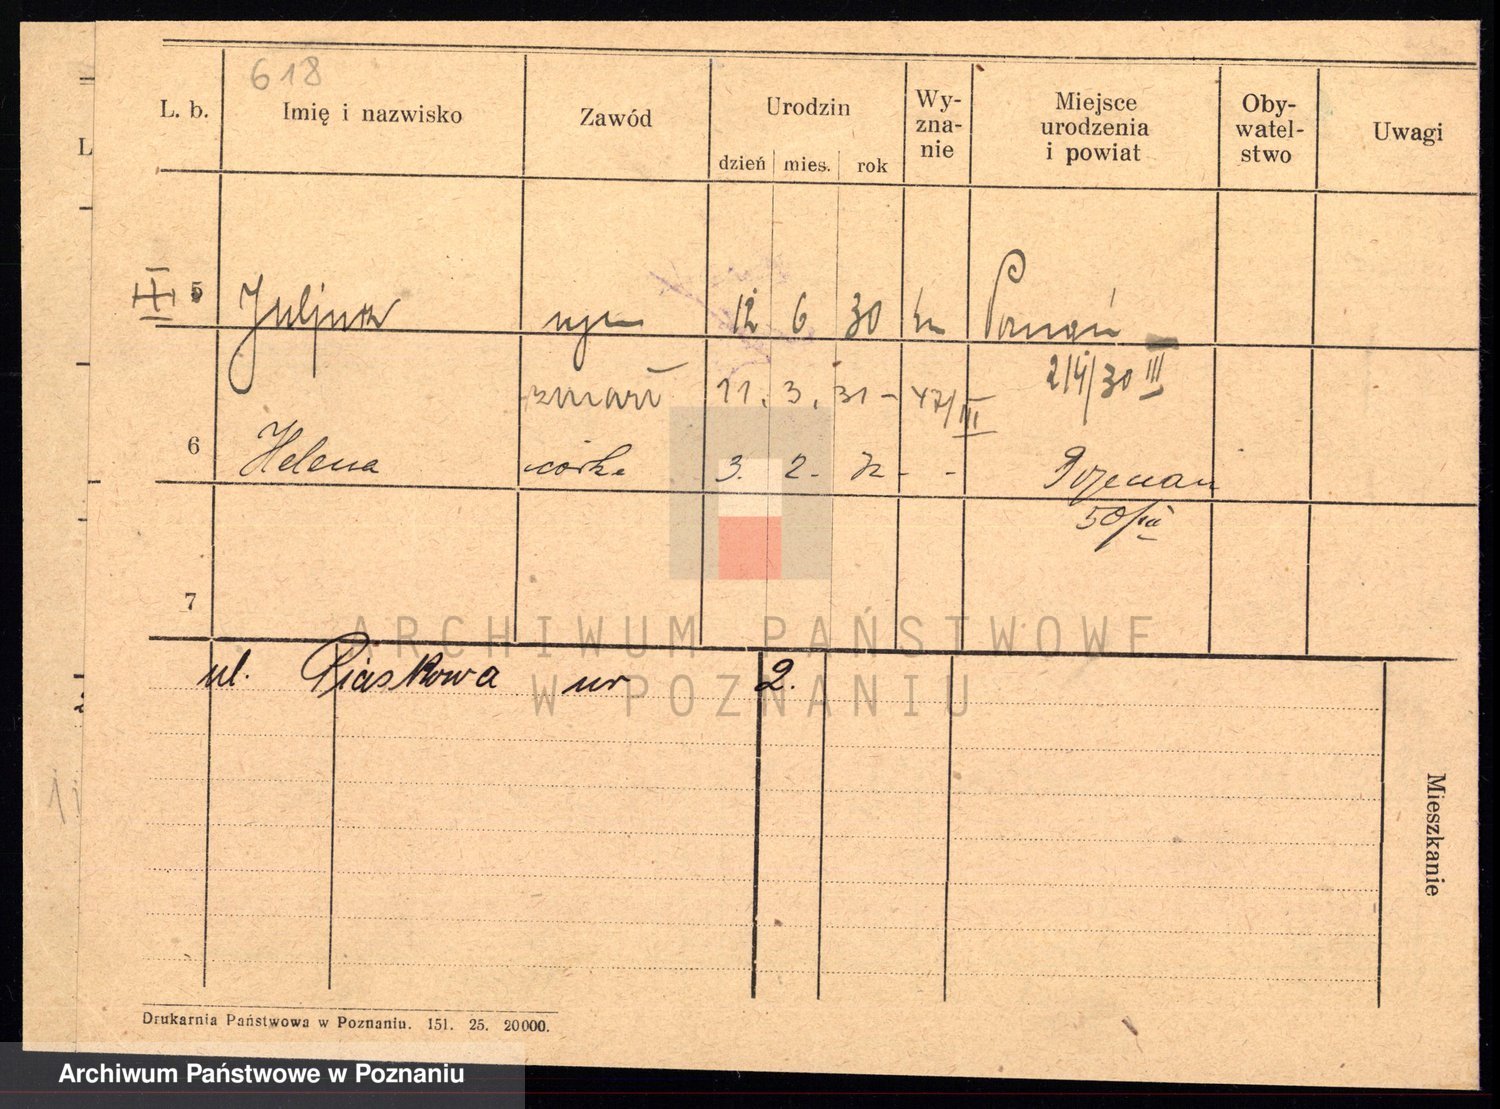 618
L. b. Imię i nazwisko Zawód Urodzin Wy-zna-nie Miejsce urodzenia i powiat Oby-watel-stwo Uwagi
dzień mies. rok
5 Juljusz syn 12 6 30 Poznań
zmarł 11. 3. 31 - 47/III
6 Helena córka 3. 2. 32 - - Poznań
7
ARCHIWUM PAŃSTWOWE
W POZNANIU
ul. Piaskowa nr 2.
Mieszkanie
Drukarnia Państwowa w Poznaniu. 151. 25. 20000.
Archiwum Państwowe w Poznaniu